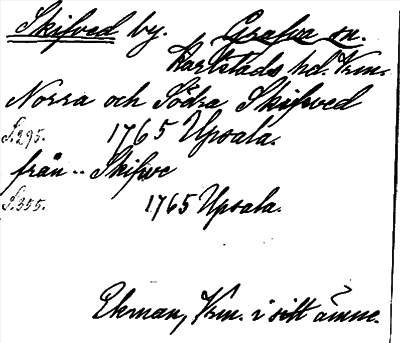 Skifved by. Grafva sn.
Karlstads hd. Vrm.
Norra och Södra Skifwed
S. 295. 1765 Upsala.
från .. Skifwe
S. 355. 1765 Upsala.
Ekman, Vrm. i sitt ämne.